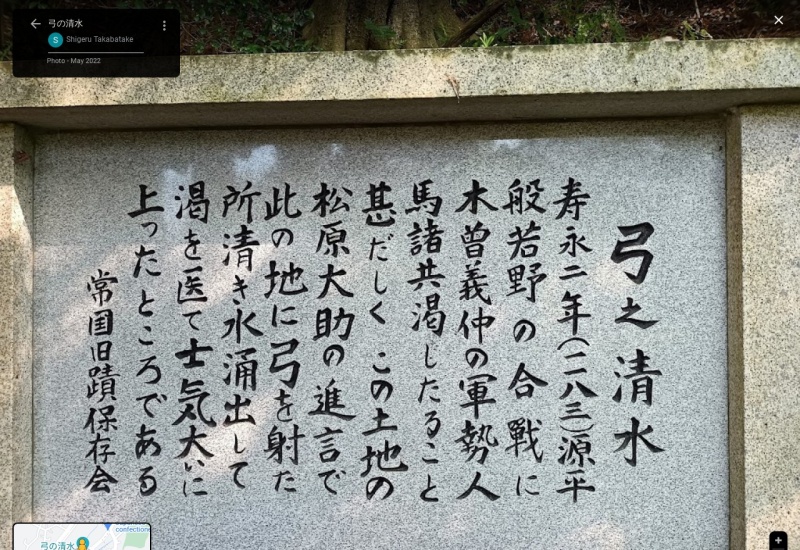 弓の清水
S
Shigeru Takabatake
Photo - May 2022
弓之清水
寿永二年(一一八三)源平
般若野の合戦に
木曽義仲の軍勢人
馬諸共渇したること
甚だしくこの土地の
松原大助の進言で
此の地に弓を射た
所清き水涌出して
渇を医て士気大いに
上ったところである
常国旧蹟保存会
confectione
弓の清水